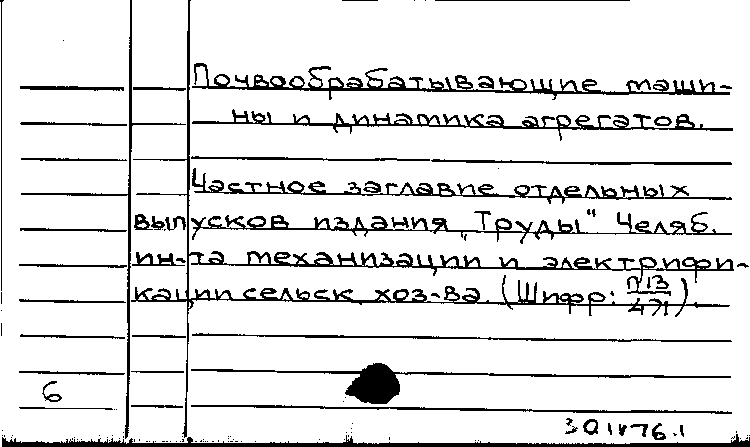 Почвообрабатывающие маши-
ны и динамика агрегатов.
Частное заглавие отдельных
выпусков издания „Труды" Челяб.
ин-та механизации и электрифи-
кации сельск. хоз-ва. (Шифр: П13/471).
6